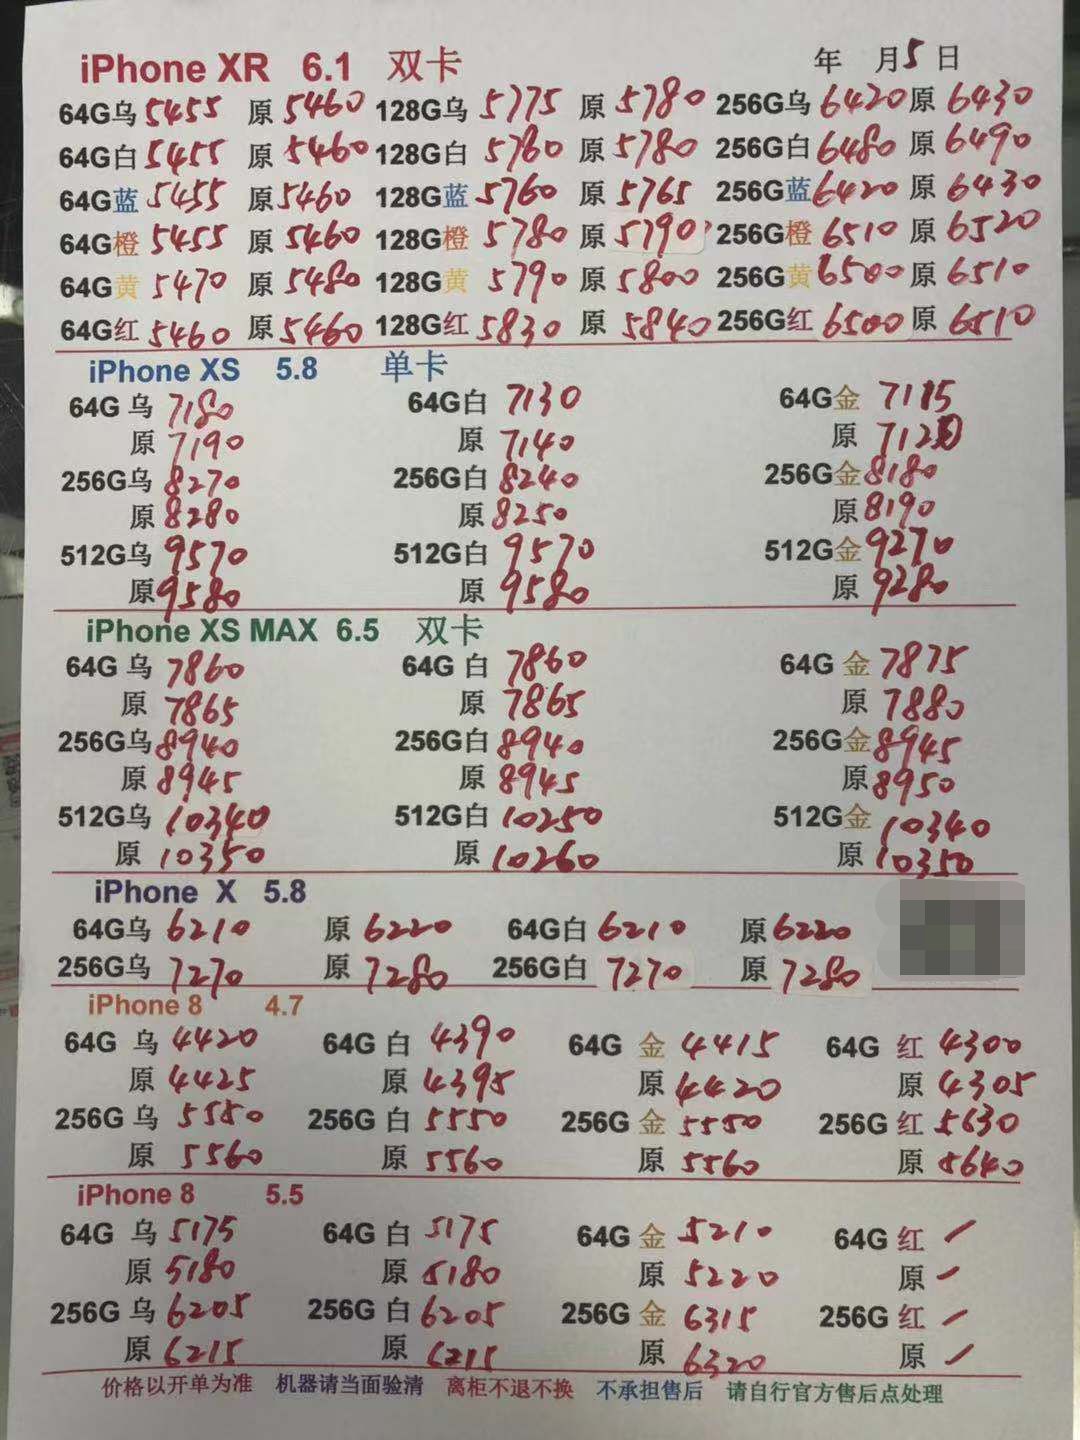 iPhone XR 6.1 双卡 年 月5日
64G乌 5455 原 5460 128G乌 5775 原 5780 256G乌 6420 原 6430
64G白 5455 原 5460 128G白 5760 原 5780 256G白 6480 原 6490
64G蓝 5455 原 5460 128G蓝 5760 原 5765 256G蓝 6420 原 6430
64G橙 5455 原 5460 128G橙 5780 原 5790 256G橙 6510 原 6520
64G黄 5470 原 5480 128G黄 5790 原 5800 256G黄 6500 原 6510
64G红 5460 原 5460 128G红 5830 原 5840 256G红 6500 原 6510
iPhone XS 5.8 单卡
64G 乌 7180 64G白 7130 64G金 7115
原 7190 原 7140 原 7120
256G乌 8270 256G白 8240 256G金 8180
原 8280 原 8250 原 8190
512G乌 9570 512G白 9570 512G金 9270
原 9580 原 9580 原 9280
iPhone XS MAX 6.5 双卡
64G 乌 7860 64G 白 7860 64G 金 7875
原 7865 原 7865 原 7880
256G乌 8940 256G白 8940 256G金 8945
原 8945 原 8945 原 8950
512G乌 10340 512G白 10250 512G金 10340
原 10350 原 10260 原 10350
iPhone X 5.8
64G乌 6210 原 6220 64G白 6210 原 6220
256G乌 7270 原 7280 256G白 7270 原 7280
iPhone 8 4.7
64G 乌 4420 64G 白 4390 64G 金 4415 64G 红 4300
原 4425 原 4395 原 4420 原 4305
256G 乌 5550 256G 白 5550 256G 金 5550 256G 红 5630
原 5560 原 5560 原 5560 原 5640
iPhone 8 5.5
64G 乌 5175 64G 白 5175 64G 金 5210 64G 红 /
原 5180 原 5180 原 5220 原 /
256G 乌 6205 256G 白 6205 256G 金 6315 256G 红 /
原 6215 原 6215 原 6320 原 /
价格以开单为准 机器请当面验清 离柜不退不换 不承担售后 请自行官方售后点处理